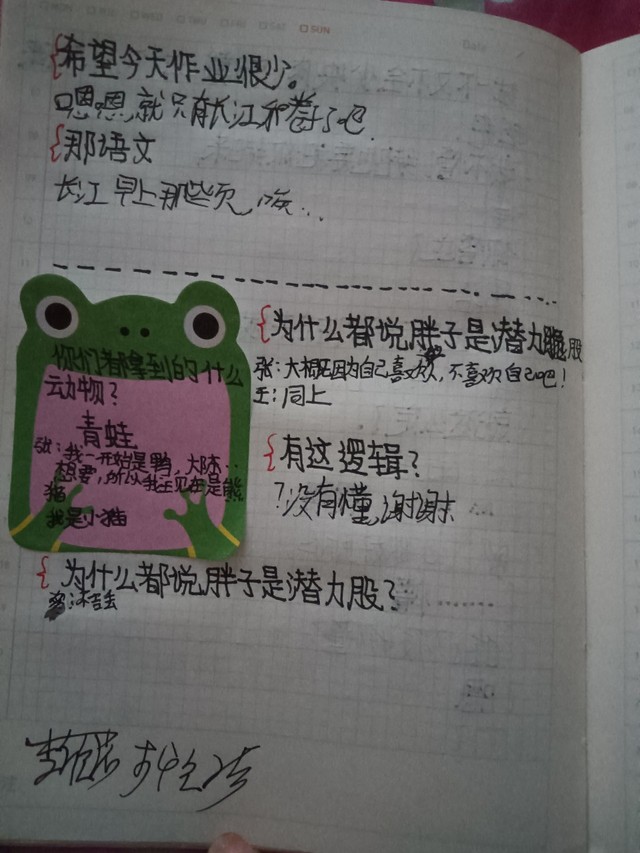 SUN
希望今天作业很少。
嗯嗯就只有长江和卷子了吧
那语文
长江早上那些页,唉...
你们都拿到的什么
动物?
青蛙
张:我一开始是鸭,大陈..
想要,所以我现在是熊
猫
我是小猫
为什么都说胖子是潜力股
张:大概因为自己喜欢,不喜欢自己吧!
王:同上
有这逻辑?
?没有懂,谢谢
为什么都说胖子是潜力股?